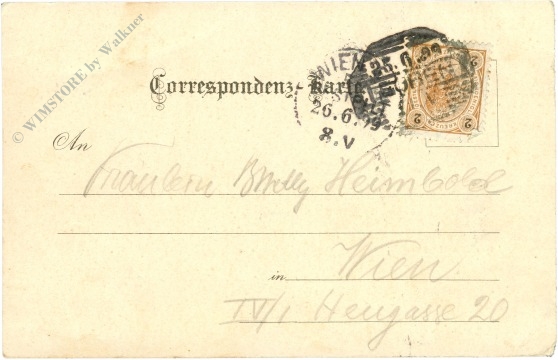 © WIMSTORE by Walkner
Correspondenz-Karte
WIEN
26.6.99
8.V
25.6.99
2 KREUZER 2
An
Fräulein Willy Heimbold
Wien
in
IV/1 Heugasse 20